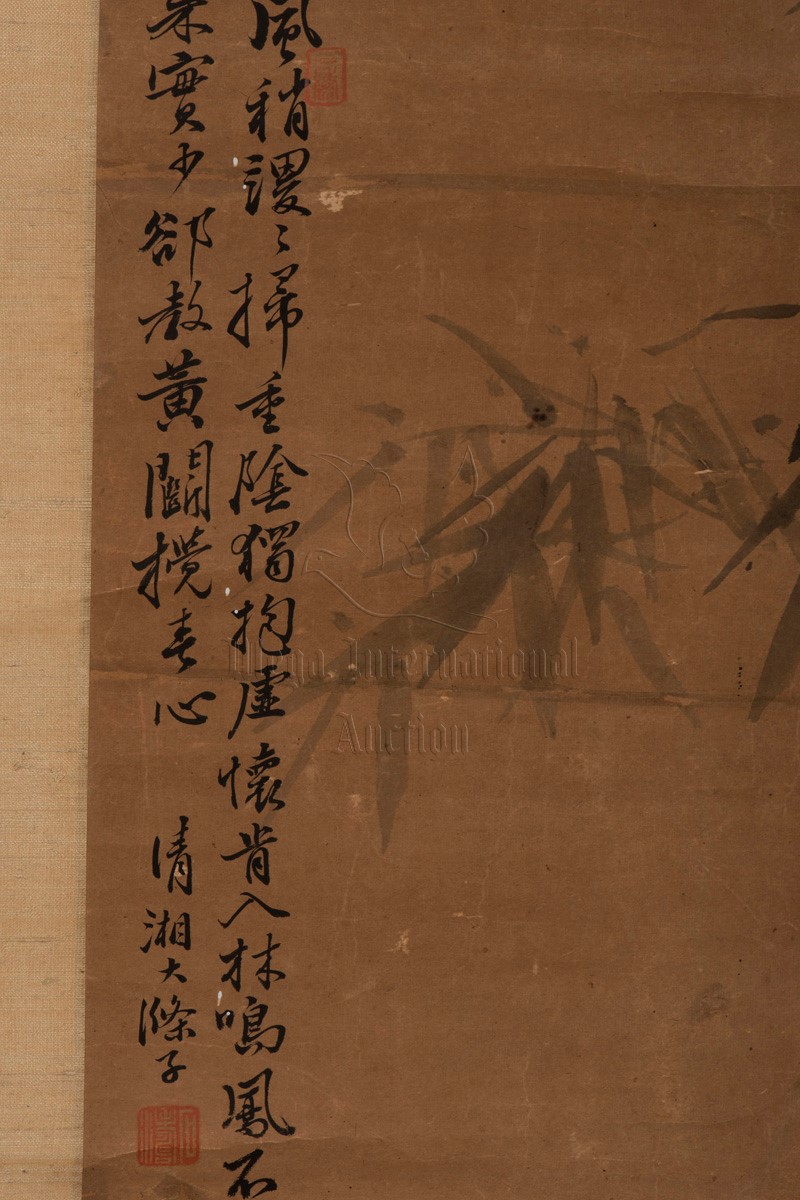 風稍謖〻掃重陰獨抱虛懷肯入林鳴鳳不
來實少卻教黃鬭攬春心
清湘大滌子
International
Auction